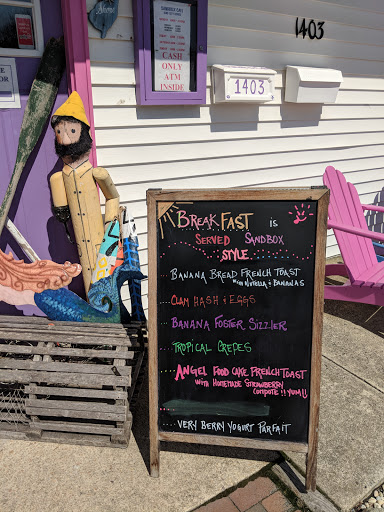 1403
CASH
ONLY
ATM
INSIDE
1403
BREAKFAST is
SERVED SANDBOX
STYLE...
BANANA BREAD FRENCH TOAST
WITH NUTELLA & BANANAS
CLAM HASH & EGGS
BANANA FOSTER SIZZLER
TROPICAL CREPES
ANGEL FOOD CAKE FRENCH TOAST
WITH HOMEMADE STRAWBERRY
COMPOTE!! YUM!!
VERY BERRY YOGURT PARFAIT